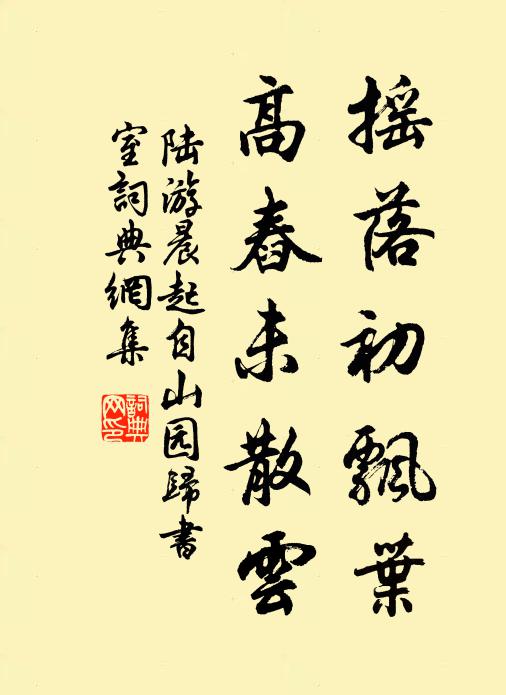 摇落初飄葉
高舂未散雲
陆游晨起自山园歸書
室詞典網集
詞典
网印